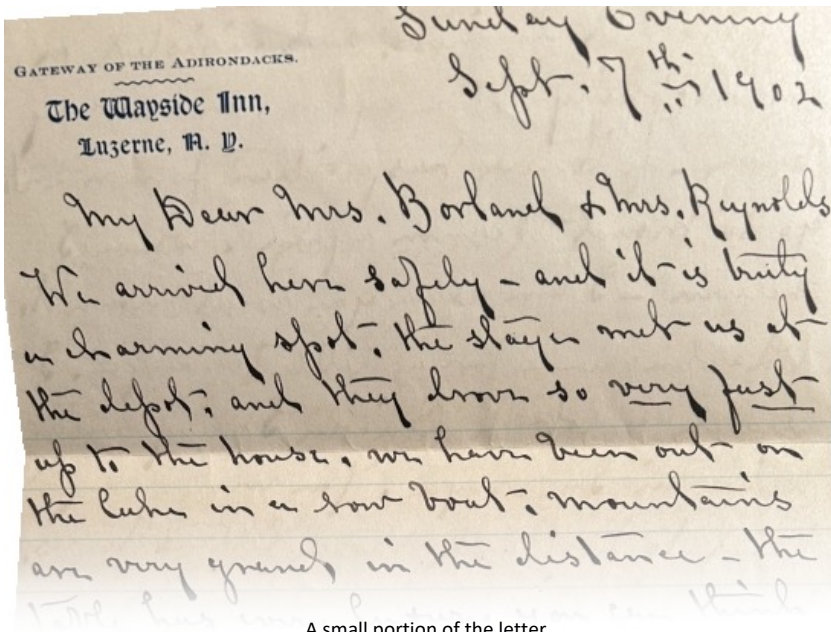 Sunday Evening
GATEWAY OF THE ADIRONDACKS.
Sept. 7th 1902
The Wayside Inn,
Luzerne, N. Y.
My Dear Mrs. Borland & Mrs. Reynolds
We arrived here safely – and it is truly
a charming spot. the stage met us at
the depot, and they drove so very fast
up to the house. we have been out on
the lake in a row boat. mountains
are very grand in the distance – the
A small portion of the letter